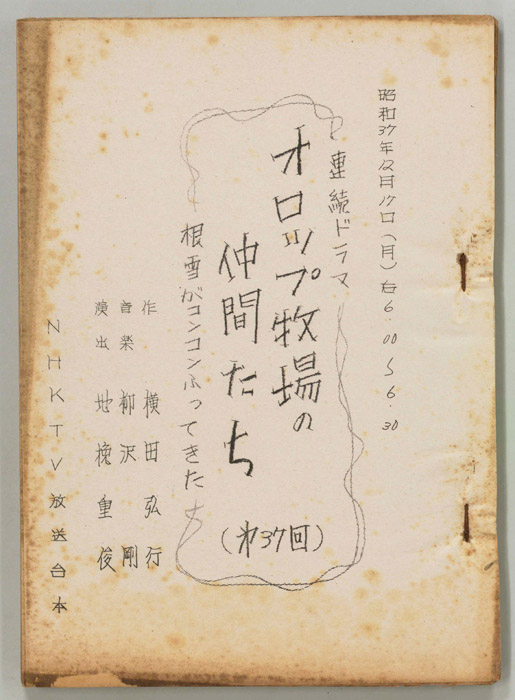 昭和37年12月17日(月)后6.00〜6.30
連続ドラマ
オロップ牧場の
仲間たち
(第37回)
根雪がコンコンふってきた
作 横田弘行
音楽 柳沢剛
演出 地挽重俊
NHKTV放送台本